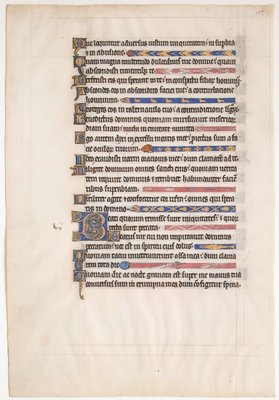 Que locuntur adversus iustum iniquitatem: in supbia
et in abusione.
Quam magna multitudo dulcedinis tue domine: quam
abscondisti timentib; te
Perfecisti eis qui sperant in te: in conspectu filior hominum
Abscondes eos in abscondito faciei tue: a conturbatione
hominum
Proteges eos in tabernaculo tuo: a contradictione
Benedictus dominus quoniam mirificavit misericor
diam suam: michi in civitate munita
Ego autem dixi in excessu mentis mee: proiectus sum a fa
cie oculor tuorum
Ideo exaudisti vocem orationis mee: dum clamarem ad te
Diligite dominum omnes sancti eius: quoniam verita
tem requiret dominus et retribuet habundanter facien
tibus superbiam
Viriliter agite et confortetur cor vestrum: omnes qui spera
tis in domino
Beati quorum remisse sunt iniquitates: et quor
tecta sunt peccata
Beatus vir cui non imputavit dominus
peccatum: nec est in spiritu eius dolus
Quoniam tacui inveteraverunt ossa mea: dum clama
rem tota die
Quoniam die ac nocte gravata est super me manus tua
conversus sum in erumpna mea dum configitur spina